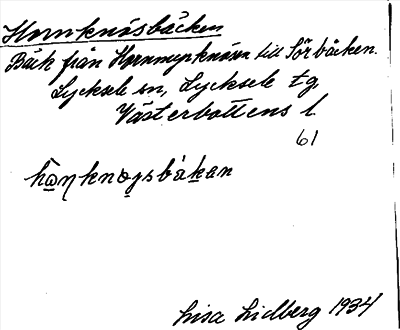 Hornknösbäcken
Bäck från Hornmyrknösen till Sörbäcken.
Lycksele sn, Lycksele tg,
Västerbottens l.
61
ho̲ŋkno̲gsbäk̲an
Lisa Lidberg 1934